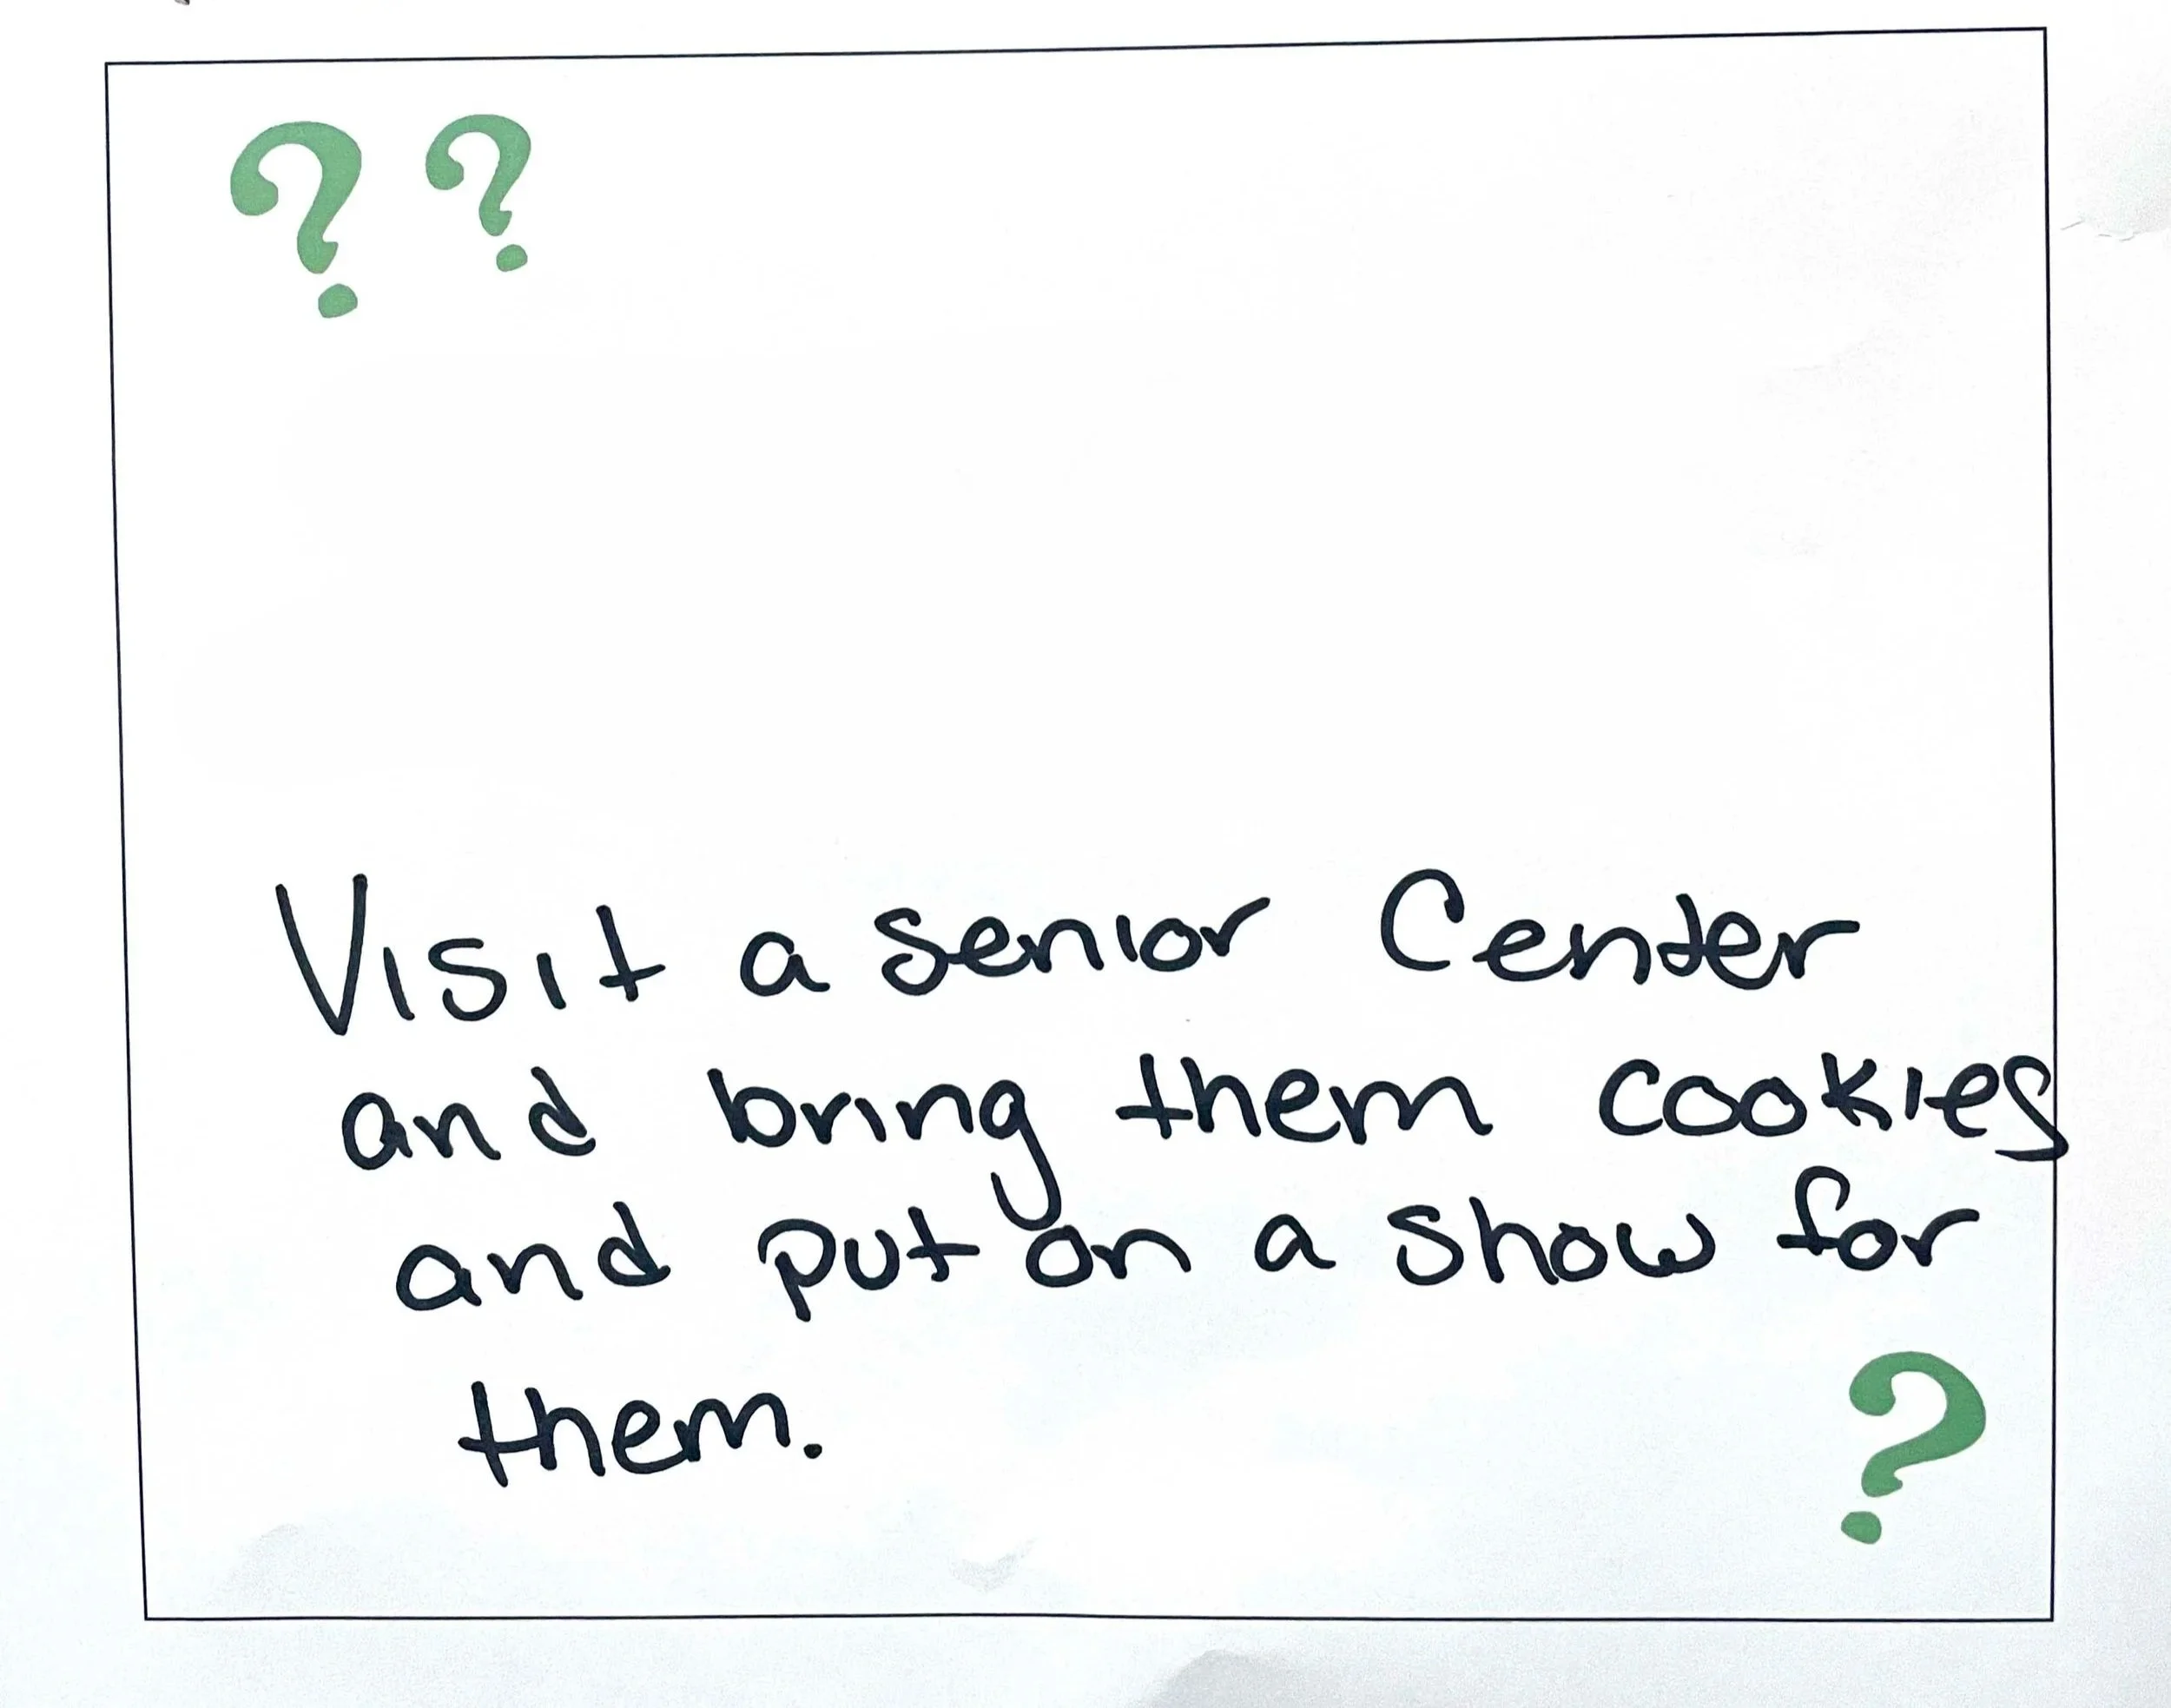 ? ?
Visit a senior Center
and bring them cookies
and put on a show for
them.
?